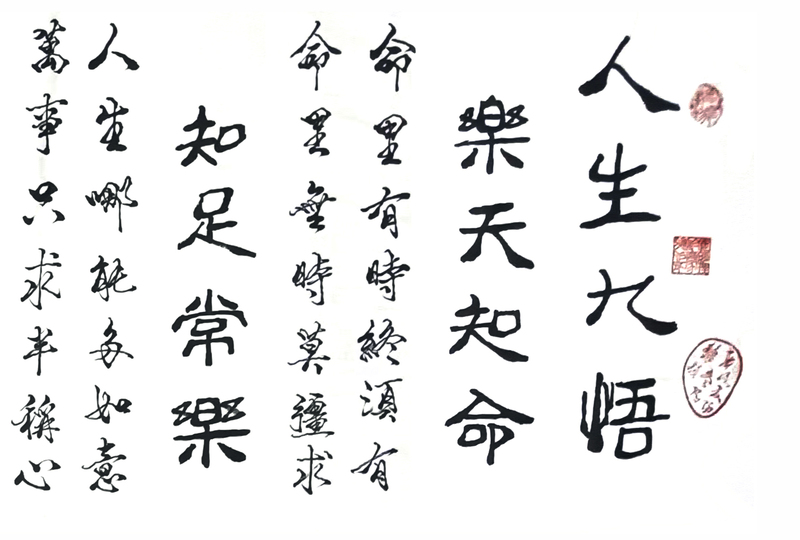 人生九悟
樂天知命
命里有時終須有
命里無時莫彊求
知足常樂
人生哪能多如意
萬事只求半稱心